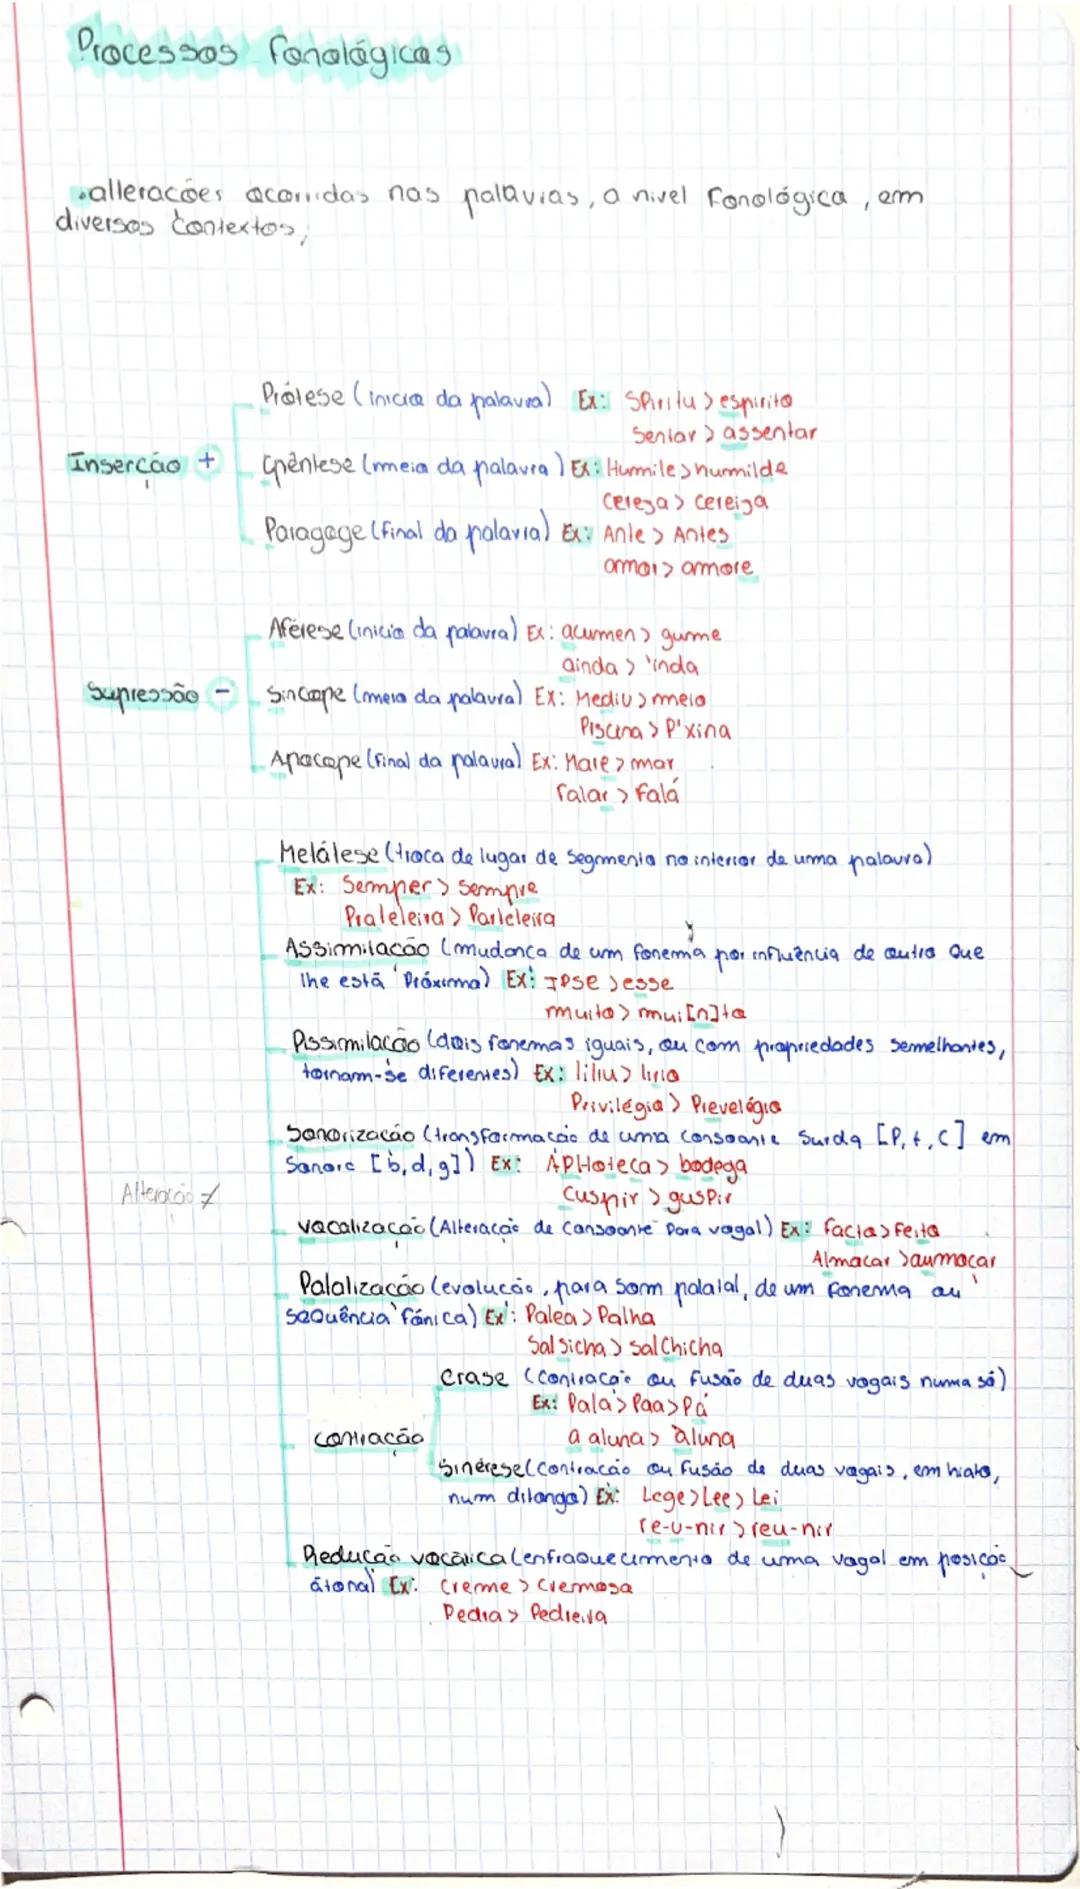 Processos fonológicos
•alterações ocorridas nas palavras, a nivel Fonológico, em
diversos contextos;
Prótese (inicio da palavra) Ex: Spiritu > espirito
Sentar > assentar
Inserção +
Epêntese (meio da palavra) Ex: Humile > humilde
cereja > cereija
Paragoge (final da palavra) Ex: Ante > Antes
amor > amore
Aférese (inicio da palavra) Ex: acumen > gume
ainda > 'inda
Supressão -
Síncope (meio da palavra) Ex: Mediu > meio
Piscina > P'xina
Apócope (final da palavra) Ex: Mare > mar
falar > falá
Metátese (troca de lugar de segmento no interior de uma palavra)
Ex: Semper > sempre
Prateleira > Parteleira
Assimilação (mudança de um fonema por influência de outro que
lhe está Próximo) Ex: IPSE > esse
muito > mui[n]to
Dissimilação (dois fonemas iguais, ou com propriedades semelhantes,
tornam-se diferentes) Ex: liliu > lirio
Privilégio > Prevelégio
Sonorização (transformação de uma consoante surda [P,t,C] em
sonora [b,d,g]) Ex: APHoteca > bodega
Cuspir > guspir
Alteração ≠
vocalização (Alteração de consoante para vogal) Ex: facto > feito
Almoçar > aumoçar
Palatização (evolução, para som palatal, de um fonema ou
sequência fónica) Ex: Palea > Palha
Salsicha > salchicha
Crase (contração ou fusão de duas vogais numa só)
Ex: Pala > Paa > Pá
contração
a aluna > àluna
Sinérese (contração ou fusão de duas vogais, em hiato,
num ditongo) Ex: Lege > Lee > Lei
re-u-nir > reu-nir
Redução vocálica (enfraquecimento de uma vogal em posição
átona) Ex: Creme > Cremoso
Pedra > Pedreira